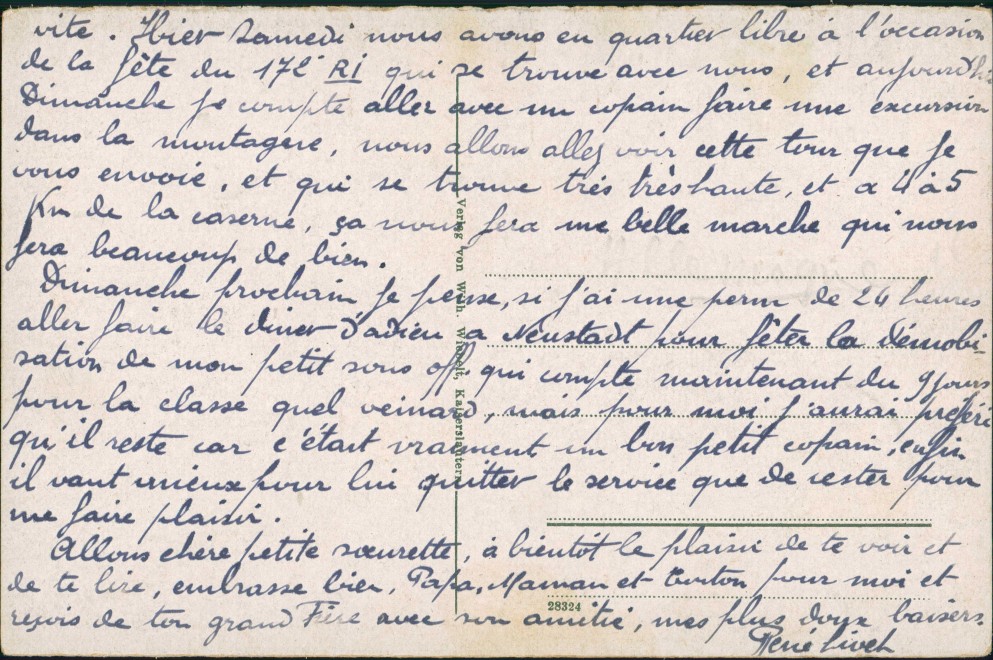 vite. Hier Samedi nous avons eu quartier libre à l'occasion
de la fête du 172e RI qui se trouve avec nous, et aujourd'hui
Dimanche je compte aller avec un copain faire une excursion
dans la montagne, nous allons allez voir cette tour que je
vous envoie, et qui se trouve très très haute, et a 4 à 5
Km de la caserne, ça nous fera une belle marche qui nous
fera beaucoup de bien.
Dimanche prochain je pense, si j'ai une perm de 24 heures
aller faire le diner d'adieu a Neustadt pour fêter la démobi-
sation de mon petit sous off qui compte maintenant du 9 jours
pour la classe quel veinard, mais pour moi j'aurai préféré
qu'il reste car c'était vraiment un bon petit copain, enfin
il vaut mieux pour lui quitter le service que de rester pour
me faire plaisir.
Allons chère petite sœurette, à bientôt le plaisir de te voir et
de te lire, embrasse bien, Papa, Maman et Tonton pour moi et
reçois de ton grand Frère avec son amitié, mes plus doux baisers.
René
Verlag von Wilh. Kaiserslautern
28324